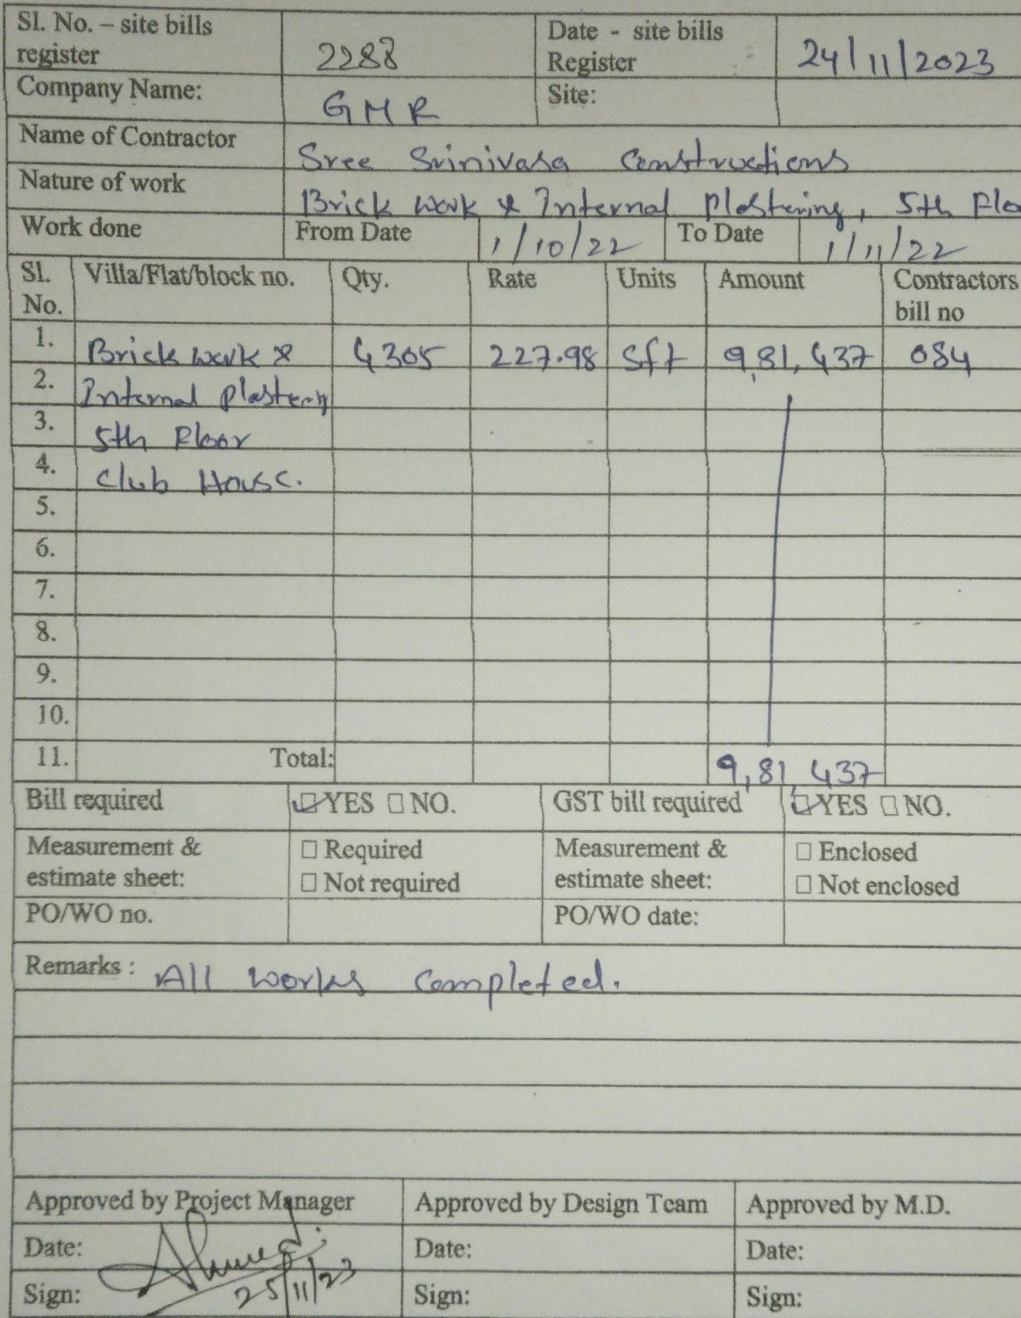 Sl. No. – site bills register 2288 Date - site bills Register 24/11/2023
Company Name: GMR Site:
Name of Contractor Sree Srinivasa Constructions
Nature of work Brick work & Internal Plastering, 5th Floo
Work done From Date 1/10/22 To Date 1/11/22
Sl. No. Villa/Flat/block no. Qty. Rate Units Amount Contractors bill no
1. Brick work & 4305 227.98 Sft 9,81,437 084
2. Internal Plastering
3. 5th Floor
4. Club House.
5.
6.
7.
8.
9.
10.
11. Total: 9,81,437
Bill required ☑YES ☐NO. GST bill required ☑YES ☐NO.
Measurement & estimate sheet: ☐ Required ☐ Not required Measurement & estimate sheet: ☐ Enclosed ☐ Not enclosed
PO/WO no. PO/WO date:
Remarks : All works completed.
Approved by Project Manager Approved by Design Team Approved by M.D.
Date: Date: Date:
Sign: 25/11/23 Sign: Sign: